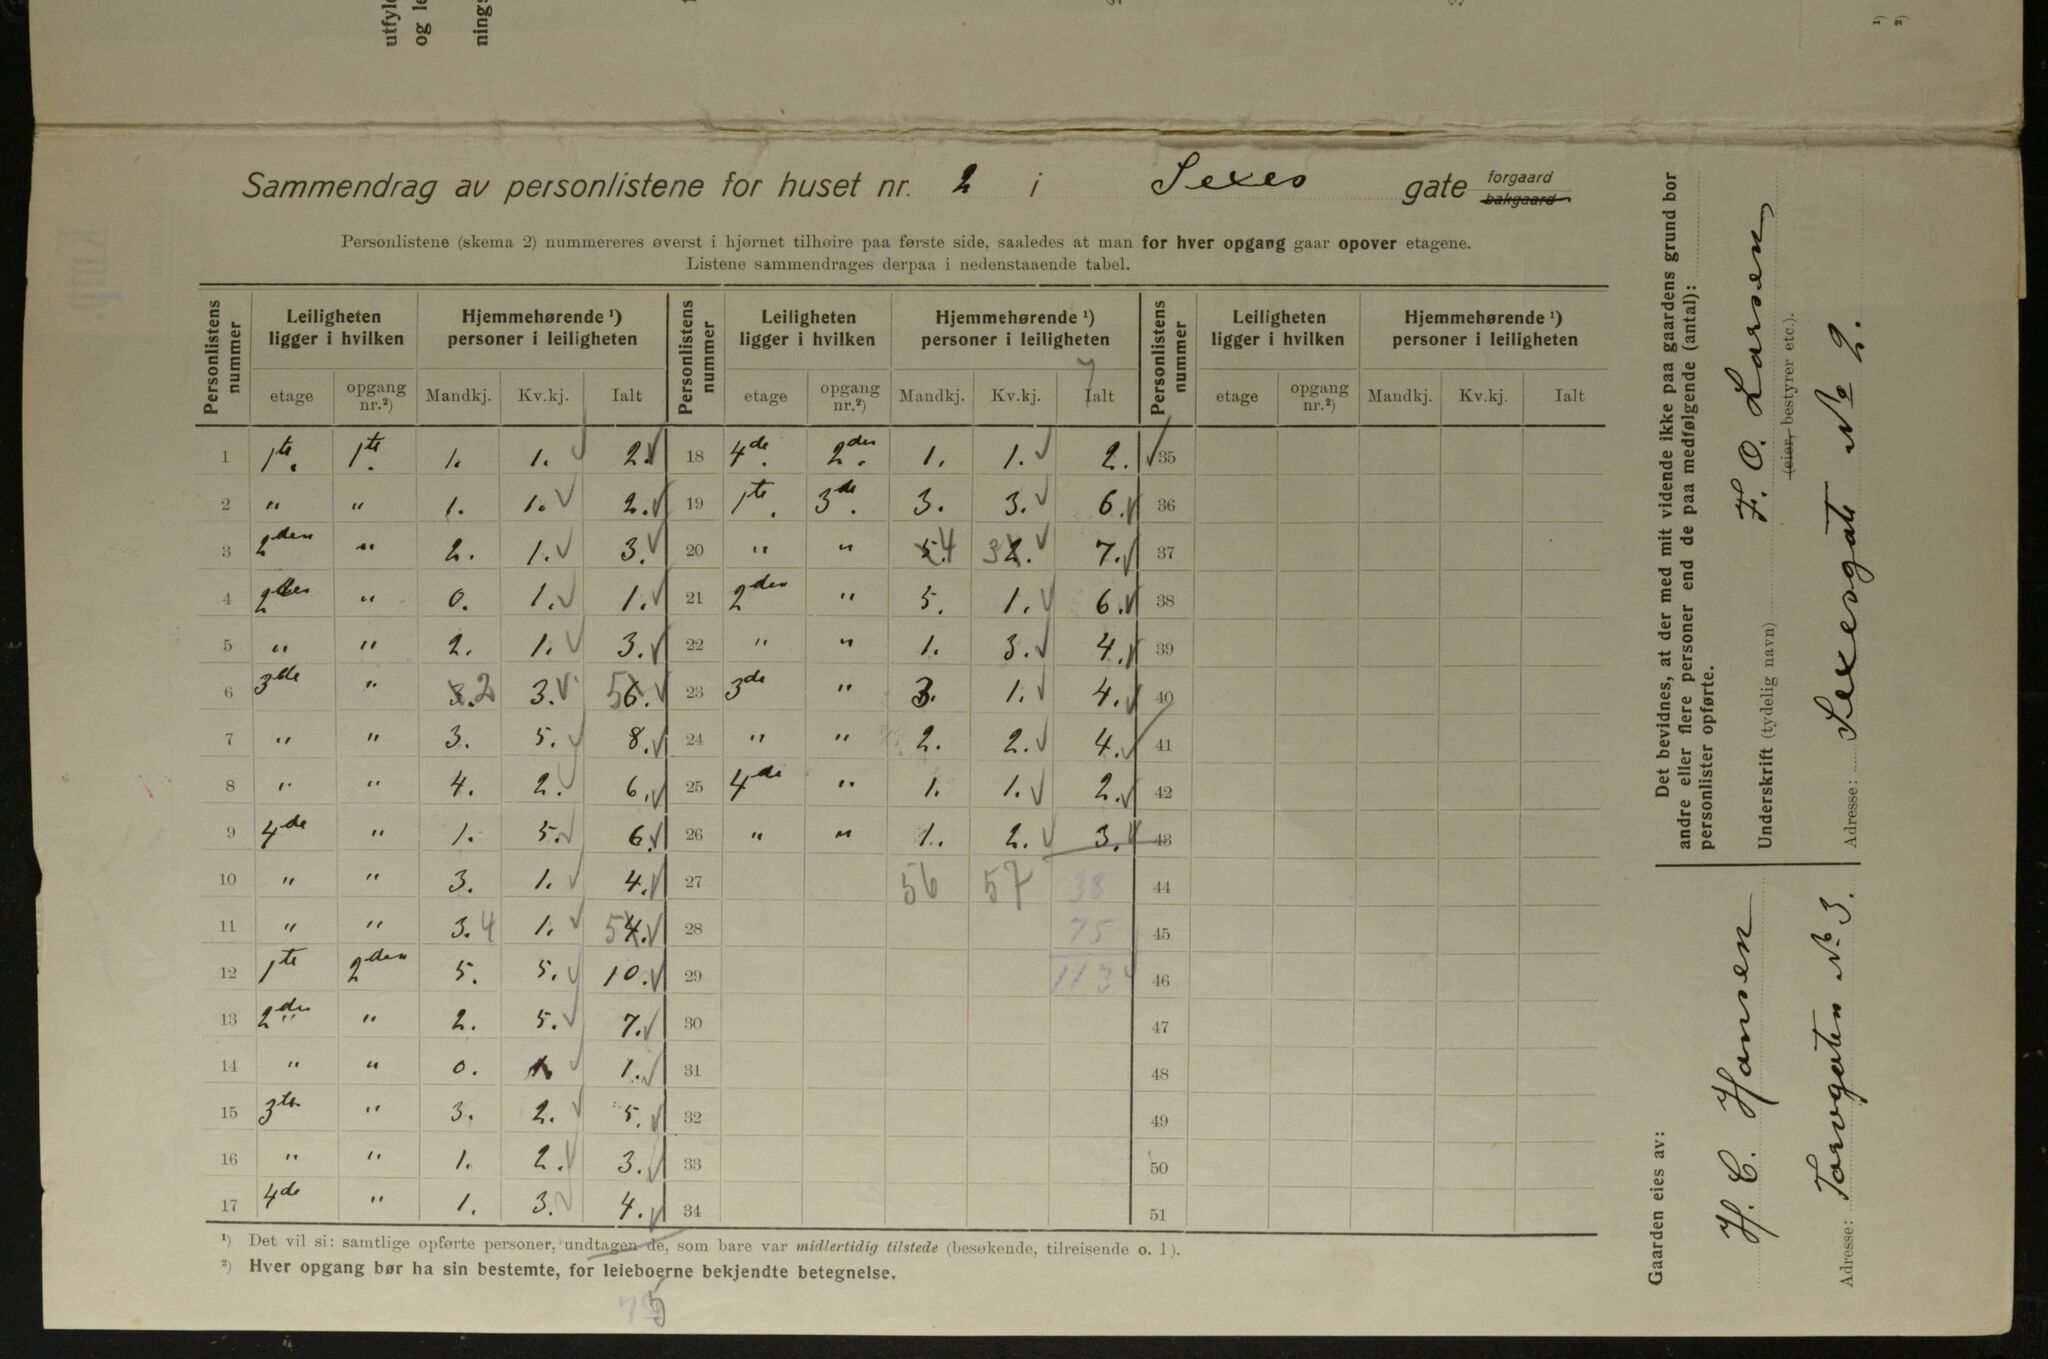 utfyl
og le
nings
1)
2)
Sammendrag av personlistene for huset nr. 2 i Sexes gate forgaard bakgaard
Personlistene (skema 2) nummereres øverst i hjørnet tilhøire paa første side, saaledes at man for hver opgang gaar opover etagene.
Listene sammendrages derpaa i nedenstaaende tabel.
Personlistens nummer | Leiligheten ligger i hvilken | Hjemmehørende ¹) personer i leiligheten | Personlistens nummer | Leiligheten ligger i hvilken | Hjemmehørende ¹) personer i leiligheten | Personlistens nummer | Leiligheten ligger i hvilken | Hjemmehørende ¹) personer i leiligheten
7
etage | opgang nr.²) | Mandkj. | Kv.kj. | Ialt | etage | opgang nr.²) | Mandkj. | Kv.kj. | Ialt | etage | opgang nr.²) | Mandkj. | Kv.kj. | Ialt
1 1te. 1te. 1. 1. 2. 18 4de. 2den. 1. 1. 2. 35
2 " " 1. 1. 2. 19 1te. 3de. 3. 3. 6. 36
3 2den " 2. 1. 3. 20 " " 5. 4 3 2. 7. 37
4 2den " 0. 1. 1. 21 2den " 5. 1. 6. 38
5 " " 2. 1. 3. 22 " " 1. 3. 4. 39
6 3de " 3. 2 3. 5 6. 23 3de " 3. 1. 4. 40
7 " " 3. 5. 8. 24 " " 2. 2. 4. 41
8 " " 4. 2. 6. 25 4de " 1. 1. 2. 42
9 4de " 1. 5. 6. 26 " " 1. 2. 3. 43
10 " " 3. 1. 4. 27 56 57 38 44
11 " " 3. 4 1. 5 4. 28 75 45
12 1te 2den 5. 5. 10. 29 113 46
13 2den " 2. 5. 7. 30 47
14 " " 0. 1. 1. 31 48
15 3de " 3. 2. 5. 32 49
16 " " 1. 2. 3. 33 50
17 4de " 1. 3. 4. 34 51
¹) Det vil si: samtlige opførte personer, undtagen de, som bare var midlertidig tilstede (besøkende, tilreisende o. l).
²) Hver opgang bør ha sin bestemte, for leieboerne bekjendte betegnelse.
75
Det bevidnes, at der med mit vidende ikke paa gaardens grund bor
andre eller flere personer end de paa medfølgende (antal):
personlister opførte.
Underskrift (tydelig navn) F. O. Larsen
(eier, bestyrer etc.).
Adresse: Sexesgate No 2.
Gaarden eies av:
H. C. Hansen
Adresse: Torvgaten No 3.